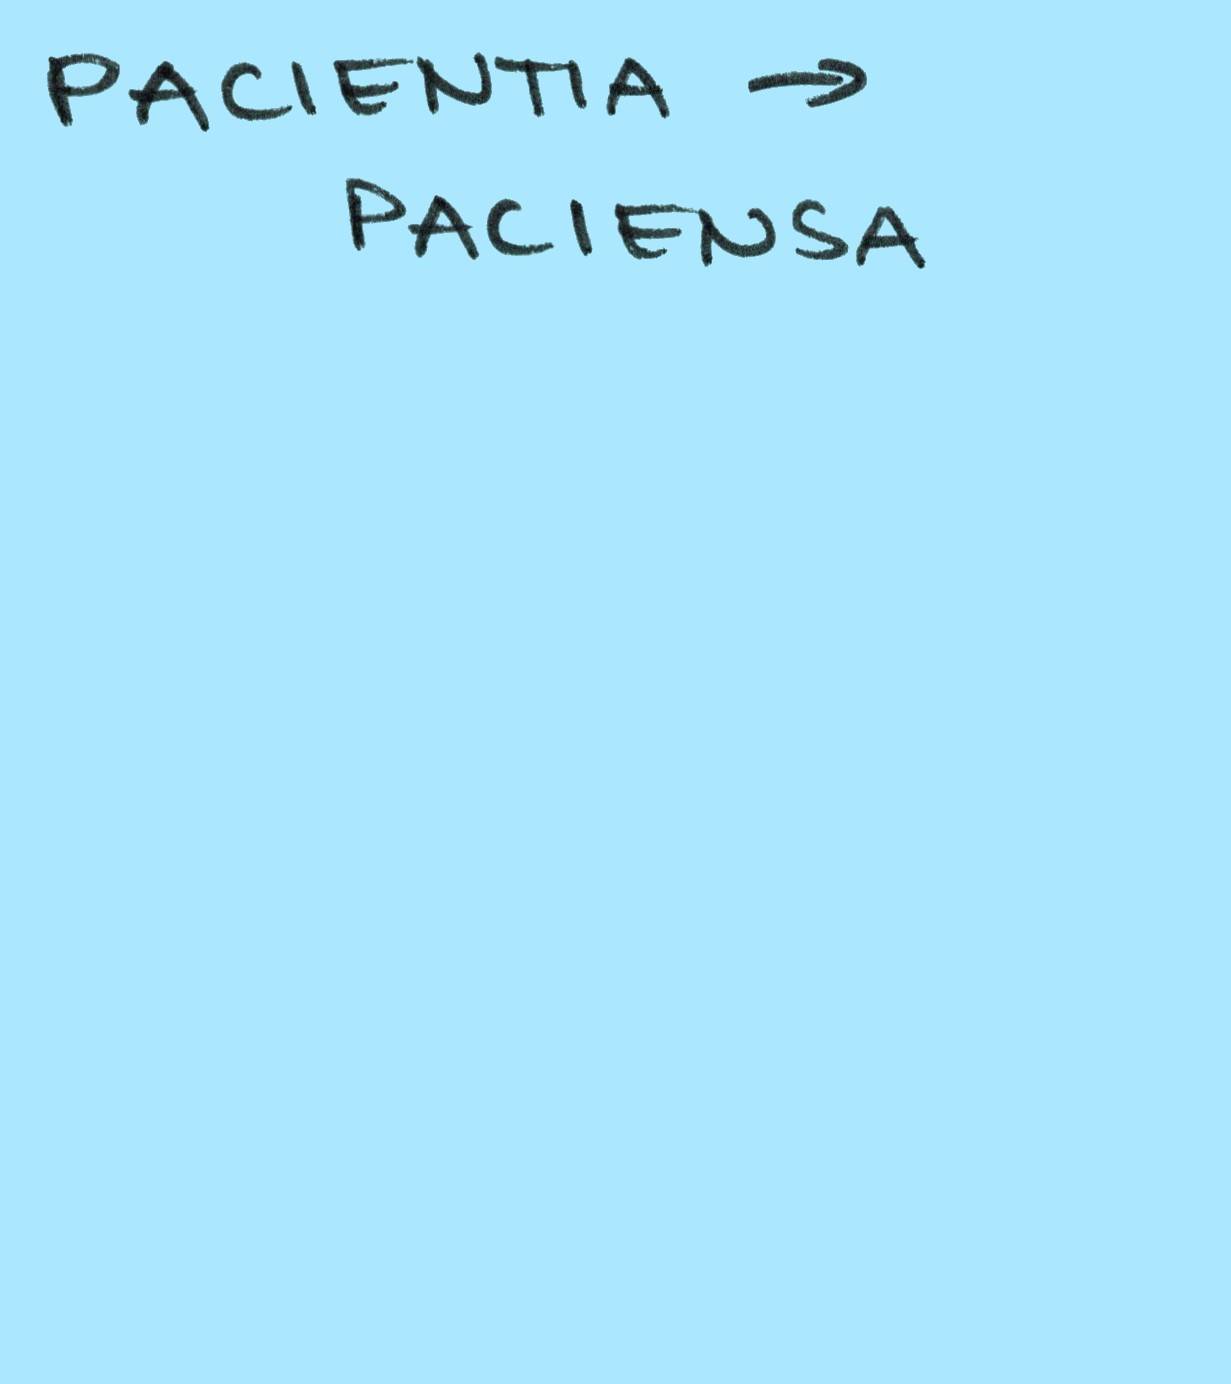 PACIENTIA →
PACIENSA